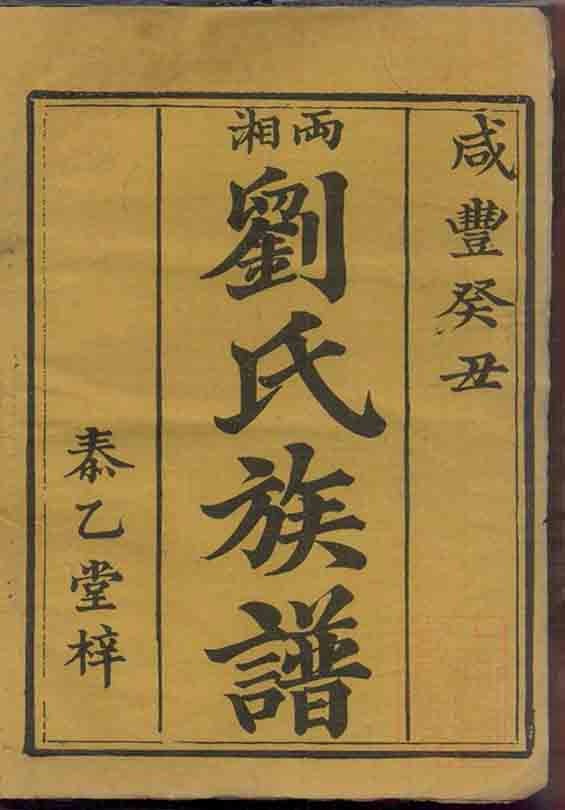 咸豐癸丑
両湘
劉氏族譜
泰乙堂梓